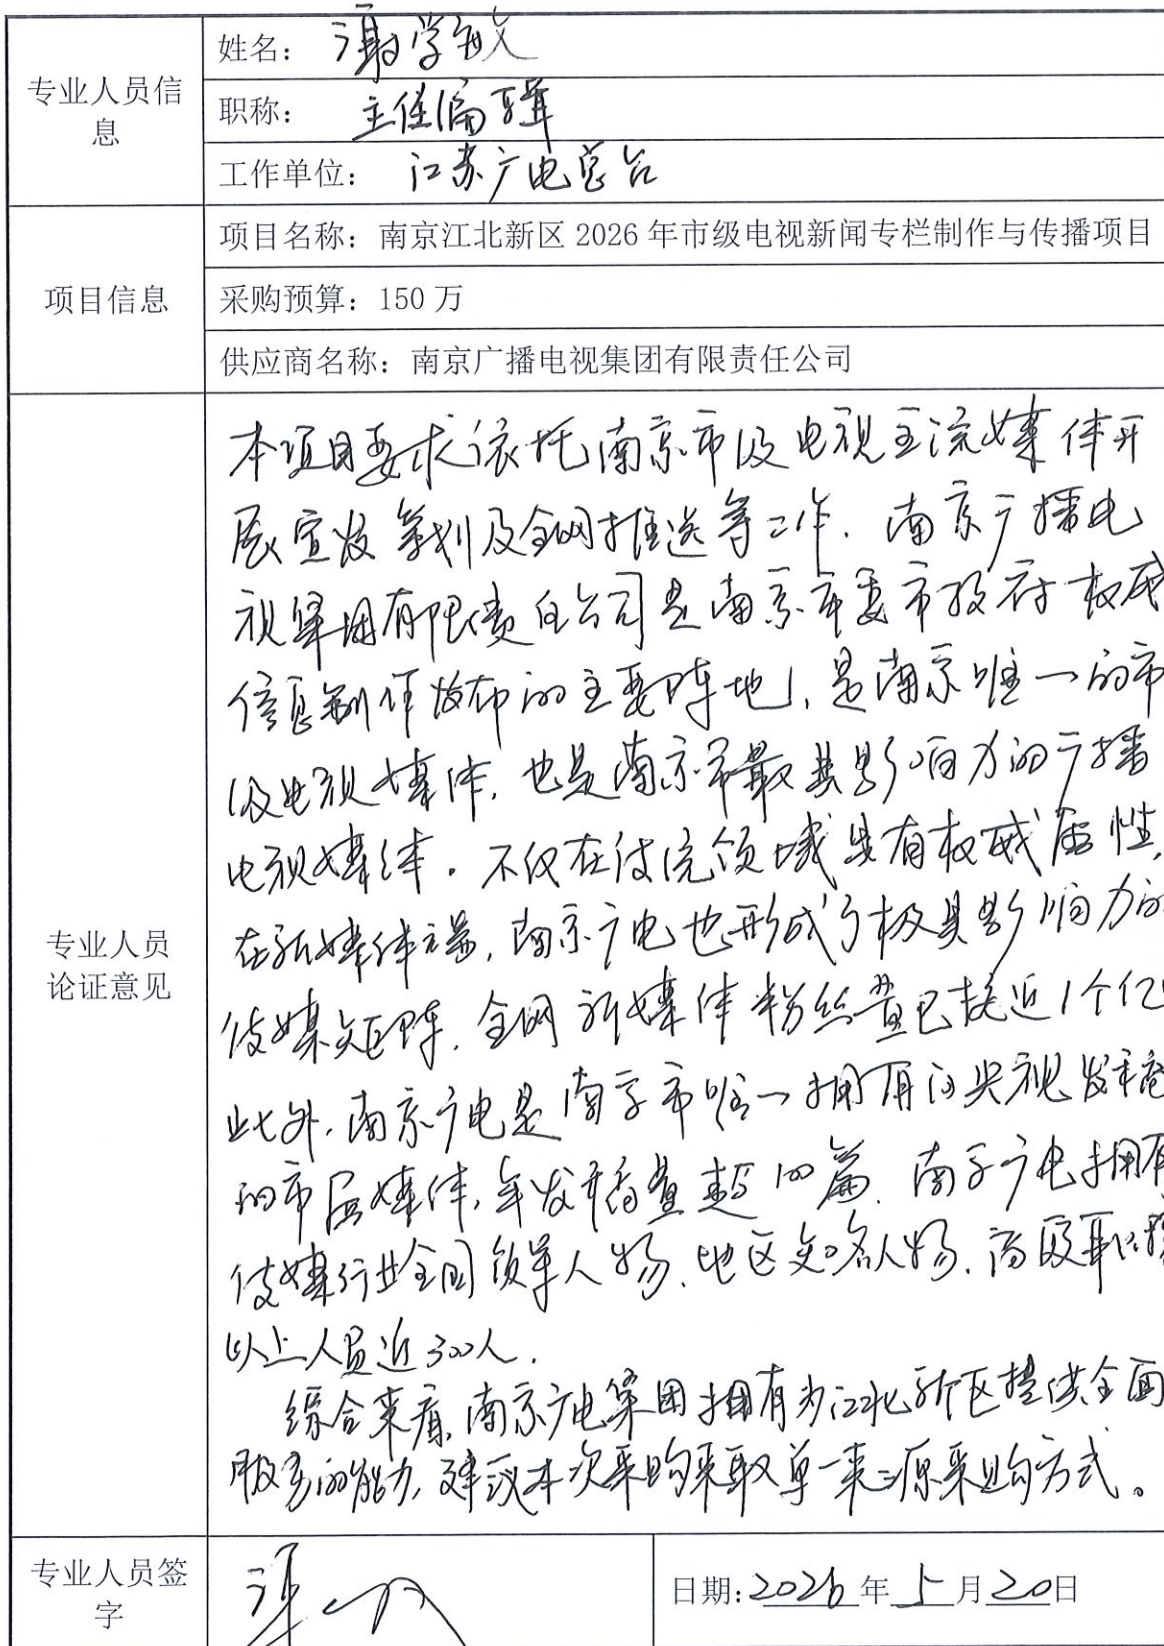 专业人员信息
姓名：谢学敏
职称：主任编辑
工作单位：江苏广电总台
项目信息
项目名称：南京江北新区 2026 年市级电视新闻专栏制作与传播项目
采购预算：150 万
供应商名称：南京广播电视集团有限责任公司
专业人员
论证意见
本项目要求依托南京市级电视主流媒体开
展宣发策划及全网推送等工作. 南京广播电
视集团有限责任公司是南京市委市政府权威
信息制作发布的主要阵地, 是南京唯一的市
级电视媒体, 也是南京市最具影响力的广播
电视媒体。不仅在传统领域具有权威属性,
在新媒体端, 南京广电也形成了极具影响力的
传媒矩阵. 全网新媒体粉丝量已接近1个亿
此外, 南京广电是南京市唯一拥有的央视发稿
的市属媒体, 年发稿量超 100篇. 南京广电拥有
传媒行业全国领军人物、地区知名人物、高级职称
以上人员近300人.
综合来看, 南京广电集团拥有为江北新区提供全面
服务的能力, 建议本次采购采取单一来源采购方式。
专业人员签字
日期: 2026 年 5 月 20 日